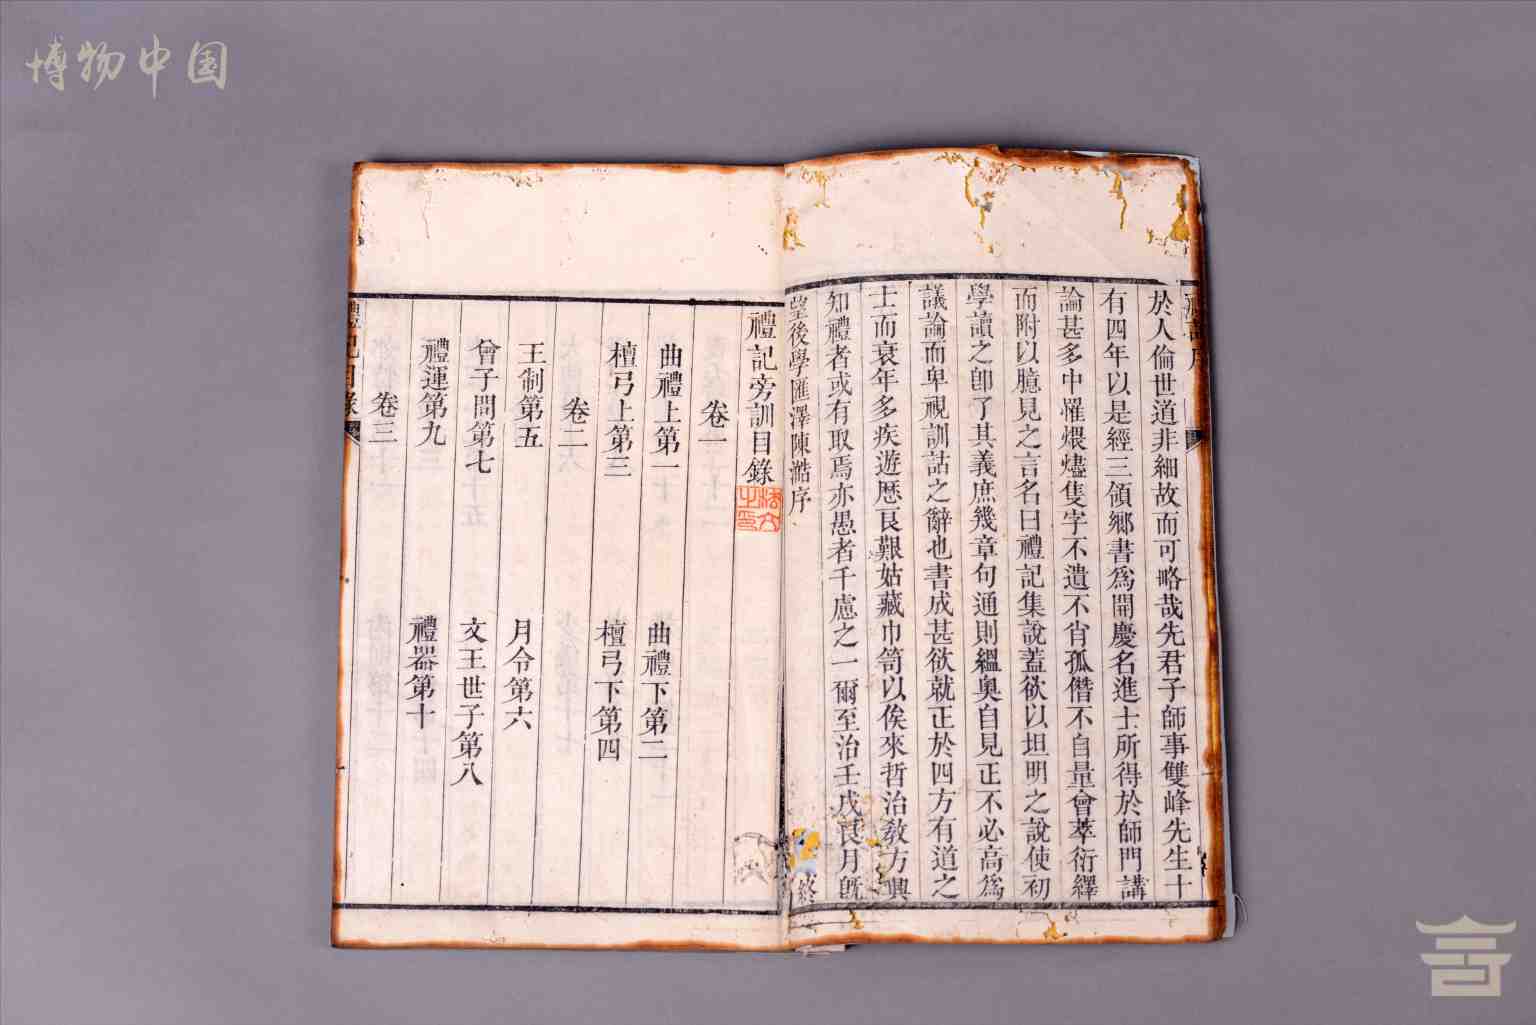 博物中国
禮記序
於人倫世道非細故而可略哉先君子師事雙峰先生十
有四年以是經三領鄉書爲開慶名進士所得於師門講
論甚多中懼煨燼隻字不遺不肖孤僭不自量會萃衍繹
而附以臆見之言名曰禮記集說蓋欲以坦明之說使初
學讀之卽了其義庶幾章句通則縕奥自見正不必高爲
議論而卑視訓詁之辭也書成甚欲就正於四方有道之
士而衰年多疾遊歷艮艱姑藏巾笥以俟來哲治教方興
知禮者或有取焉亦愚者千慮之一爾至治壬戌艮月旣
望後學匯澤陳澔序
終
禮記旁訓目錄
卷一
曲禮上第一 曲禮下第二
檀弓上第三 檀弓下第四
卷二
王制第五 月令第六
曾子問第七 文王世子第八
禮運第九 禮器第十
卷三
禮記目錄